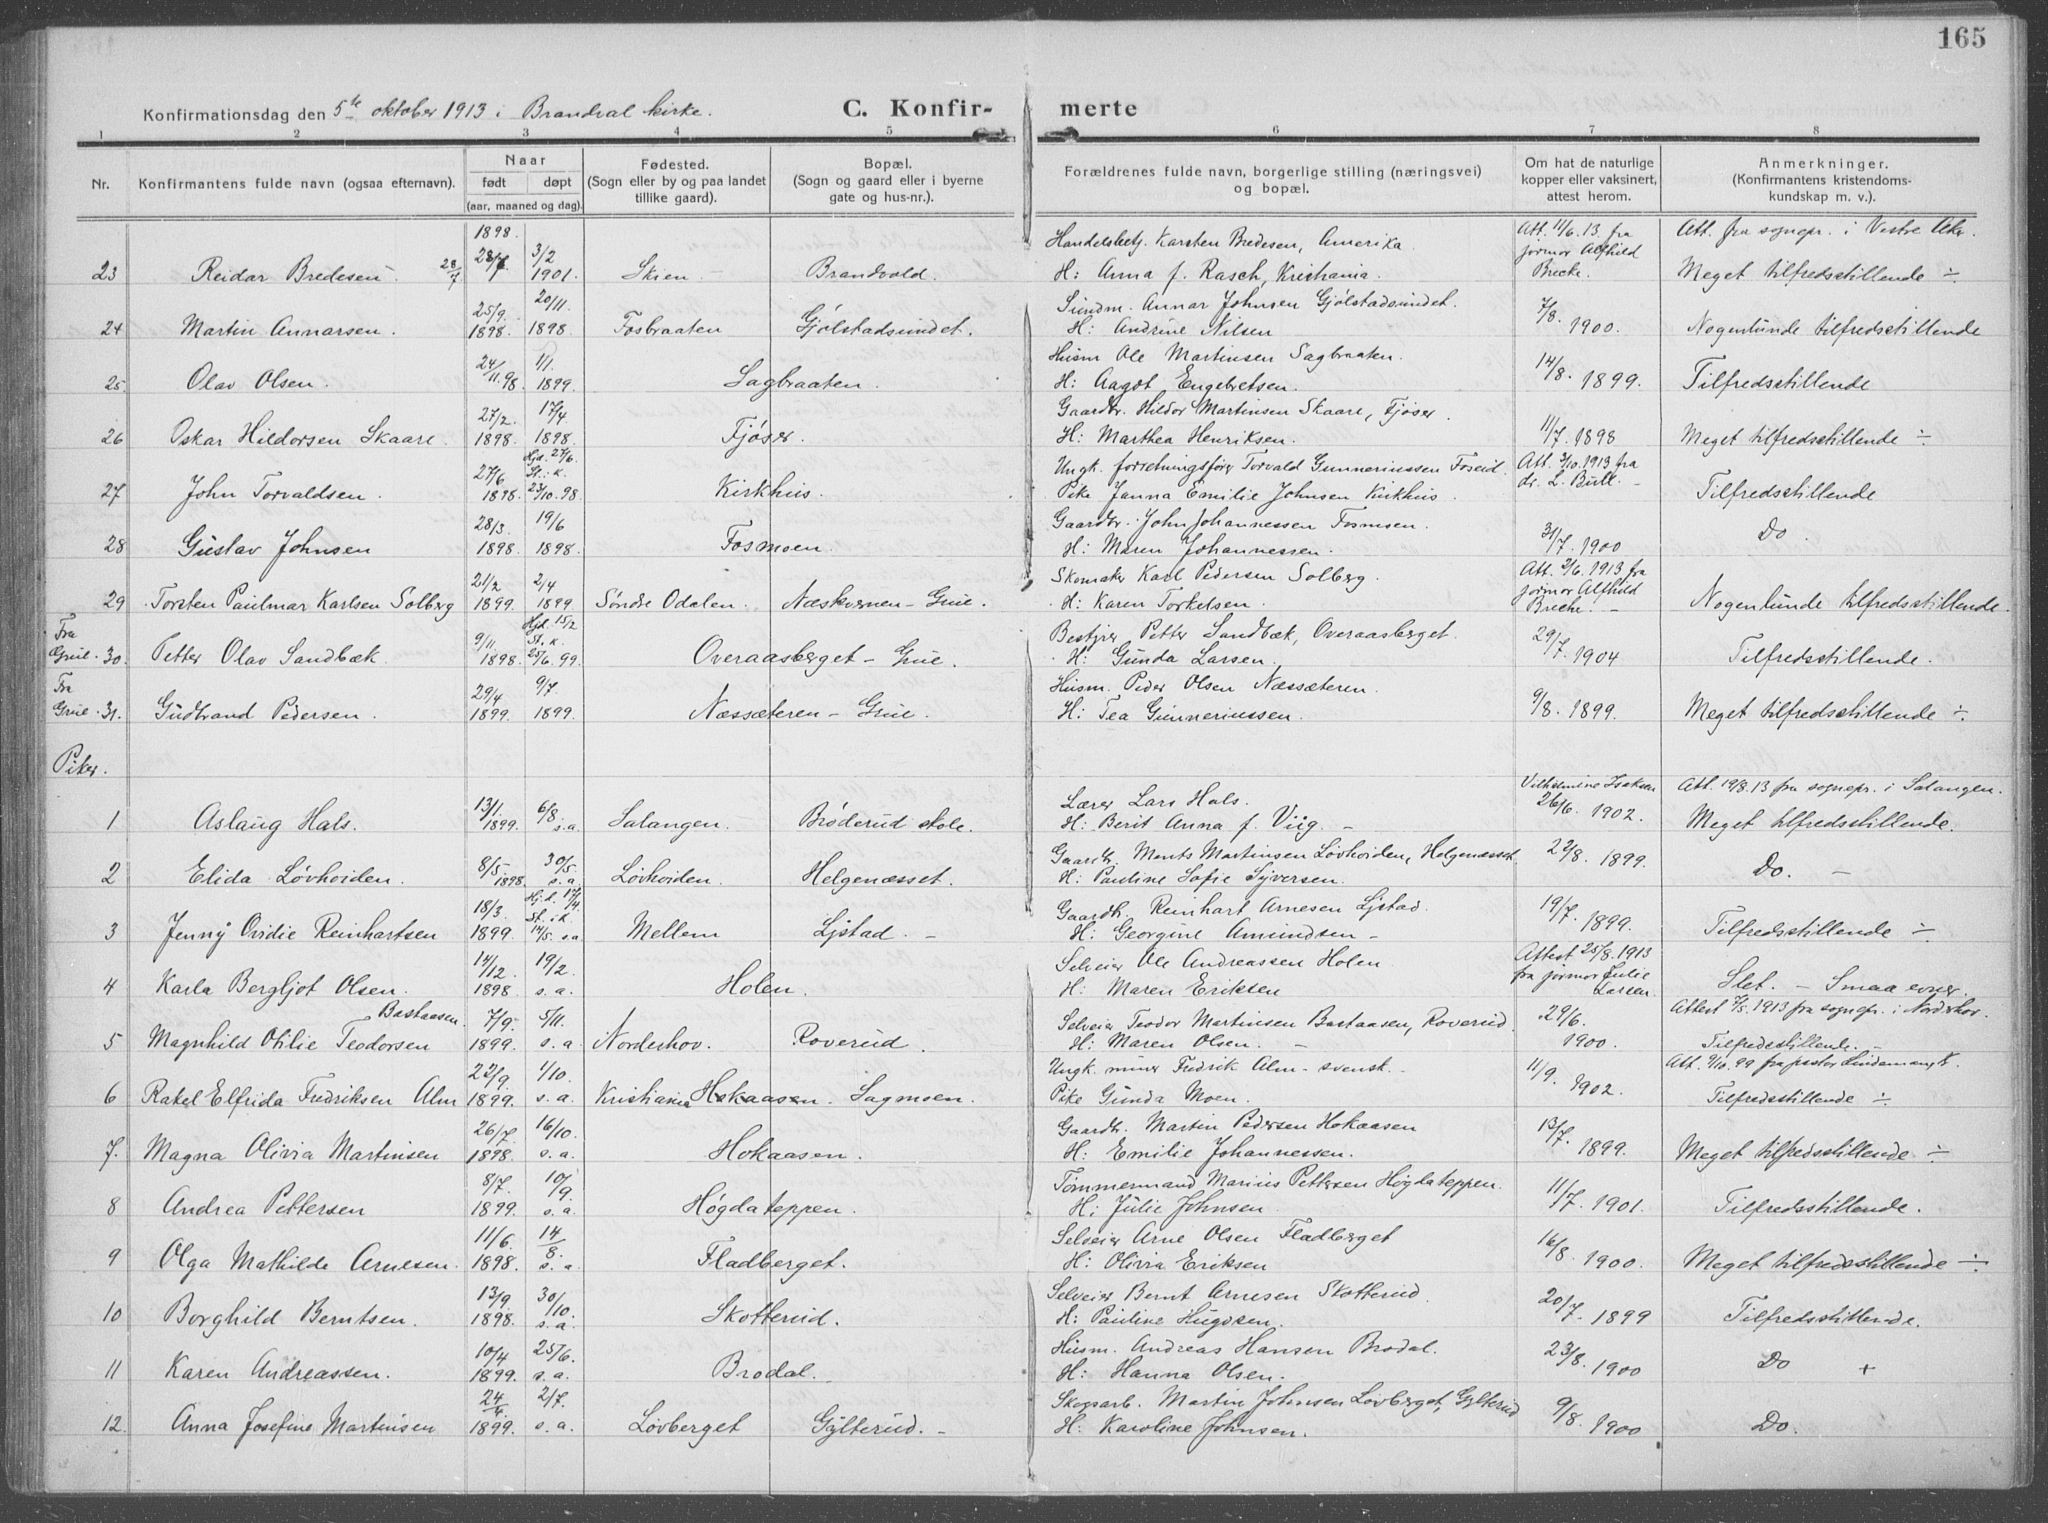 165
Konfirmationsdag den 5te oktober 1913 i Brandval kirke. C. Konfir- merte
1 2 3 4 5 6 7 8
Nr. Konfirmantens fulde navn (ogsaa efternavn). Naar født døpt (aar, maaned og dag). Fødested. (Sogn eller by og paa landet tillike gaard). Bopæl. (Sogn og gaard eller i byerne gate og hus-nr.). Forældrenes fulde navn, borgerlige stilling (næringsvei) og bopæl. Om hat de naturlige kopper eller vaksinert, attest herom. Anmerkninger. (Konfirmantens kristendoms- kundskap m. v.).
1898. Handelsbetj. Karsten Bredesen, Amerika Att. 11/6. 13 fra jormor Alfhild Att. fra sognepr. i Vestre Aker.
23 Reidar Bredesen 28/7 3/2 1901. Skien – Brandvold. H: Anna f. Rasch, Kristiania. Breche. Meget tilfredsstillende ÷
25/9. 20/11. Sundm. Annar Johnsen Gjølstadsundet. 7/8.
24 Martin Annarsen. 1898. 1898. Fosbraaten Gjølstadsundet. H: Andrine Nilsen 1900. Nogenlunde tilfredsstillende
24/11. 98. 1/1. Husm Ole Martinsen Sagbraaten. 14/8.
25 Olav Olsen. 1899. Sagbraaten. H: Aagot Engebretsen. 1899. Tilfredsstillende
27/2. 17/4 Gaardbr. Hildor Martinsen Skaare, Fjøser.
26 Oskar Hildorsen Skaare. 1898. 1898. Fjøser. H: Marthea Henriksen. 11/7. 1898 Meget tilfredsstillende ÷
27/6 Hjd. 27/6. St. i. k. Ungk. forretningsfører Torvald Gunneriussen Foseid. Att. 3/10. 1913 fra
27 John Torvaldsen. 1898. 23/10. 98. Kirkhus. Pike Janna Emilie Johnsen Kirkhus. dr. L. Bull. – Tilfredsstillende
28/3. 19/6 Gaardbr. John Johannessen Fosmoen.
28 Gustav Johnsen 1898. 1898. Fosmoen. H: Maren Johannessen. 31/7. 1900 Do.
21/2 2/4 Skomaker Karl Pedersen Solberg. Att. 2/6. 1913 fra jormor Alfhild
29 Torsten Paulmar Karlsen Solberg 1899. 1899. Søndre Odalen. Næskvernen – Grue. H: Karen Torkelsen. Breche. – Nogenlunde tilfredsstillende.
Fra 9/11. Hjd. 15/2 St. i. k. Bestyrer Petter Sandbæk, Overaasberget. 29/7.
Grue. 30. Petter Olav Sandbæk. 1898. 25/6. 99. Overaasberget – Grue. H: Gunda Larsen. 1904 Tilfredsstillende.
Fra 29/4 9/7. Husm. Peder Olsen Næssæteren.
Grue. 31. Gudbrand Pedersen. 1899. 1899. Næssæteren – Grue. H: Tea Gunneriussen. 9/8. 1899. Meget tilfredsstillende ÷
Piker.
13/1. 6/8. Lærer Lars Hals. Vilhelmine Isaksen Att. 19/8. 13 fra sognepr. i Salangen.
1 Aslaug Hals. 1899. s.a. Salangen. Brøderud skole. H: Berit Anna f. Viig. – 26/6. 1902. Meget tilfredsstillende.
8/5. 30/5 Gaardbr. Ments Martinsen Løvhoiden, Helgenæsset. 22/8. 1899.
2 Elida Løvhoiden. 1898. s.a. Løvhoiden. Helgenæsset. H: Pauline Sofie Syversen. Do. –
18/3. Hj.d. 17/4. St. i. k. Gaardbr. Reinhart Arnesen Ljstad. 19/7.
3 Jenny Ovidie Reinhartsen 1899. 14/5. s.a. Mellem Ljstad. – H: Georgine Amundsen – 1899. Tilfredsstillende ÷
14/12. 19/2. Selveier Ole Andreassen Holen. Attest 25/8. 1913
4 Karla Bergljot Olsen. 1898 s. a. Holen. H: Maren Eriksen fra jormor Julie Larsen. Slet. – Smaa evner.
Bastaasen. 7/9. 5/11. Selveier Teodor Martinsen Bastaasen, Roverud. 29/6. Attest 7/5. 1913 fra sognepr. i Nordrhov.
5 Magnhild Otilie Teodorsen 1899. s. a. Norderhov. Roverud. H: Maren Olsen. – 1900. Tilfredsstillende. –
22/9. 1/10. Ungk. miner Fredrik Alm – svensk. – 11/9.
6 Rakel Elfrida Fredriksen Alm 1899. s. a. Kristiania Hokaasen. Sagmoen. Pike Gunda Moen. 1902. Tilfredsstillende ÷
26/7. 16/10. Gaardbr. Martin Pedersen Hokaasen 13/7.
7. Magna Olivia Martinsen 1898. s. a. Hokaasen. H: Emilie Johannessen. 1899. Meget tilfredsstillende ÷
8/7. 10/9. Tømmermand Marius Pettersen Høgdateppen.
8 Andrea Pettersen 1899. s.a. Høgdateppen. H: Julie Johnsen. 11/7. 1901. Tilfredsstillende.
11/6. 14/8. Selveier Arne Olsen Fladberget 16/8.
9 Olga Mathilde Arnesen. 1898. s. a. Fladberget. H: Olivia Eriksen 1900. Meget tilfredsstillende ÷
13/9. 30/10. Selveier Bernt Arnesen Skotterud. 20/7.
10 Borghild Berntsen. 1898. s. a. Skotterud. H: Pauline Hugosen. 1899 Tilfredsstillende.
10/4 25/6. Husm. Andreas Hansen Brodal. 23/8.
11 Karen Andreassen. 1899. s. a. Brodal. H: Hanna Olsen. 1900 Do +
24/4. 2/7. Skogsarb. Martin Johnsen Løvberget, Gylterud 9/8.
12. Anna Josefine Martinsen 1899. s. a. Løvberget Gylterud. – H: Karoline Johnsen. 1900 Do.